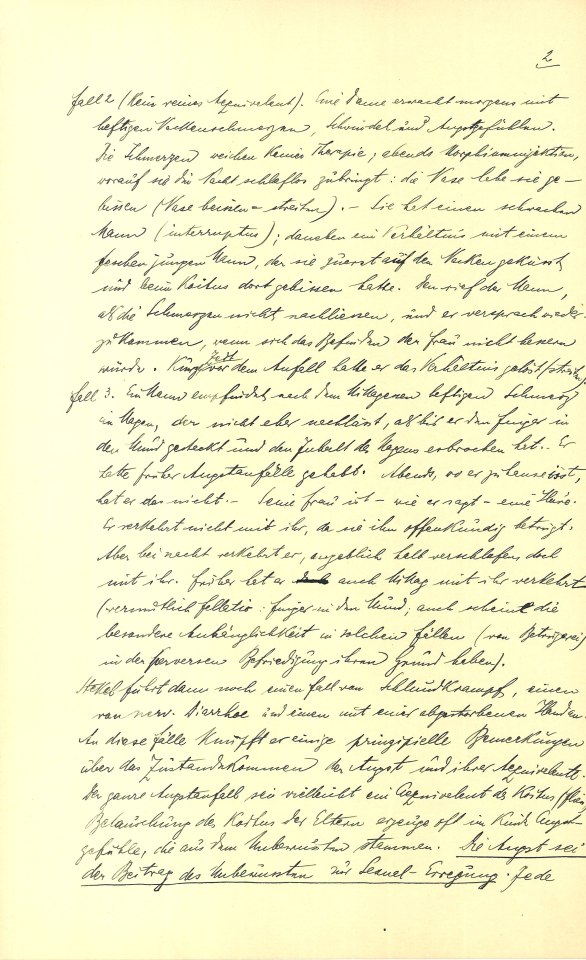 2
Fall 2 (Kein reines Aequivalent). Eine Dame erwacht morgens mit
heftigen Nackenschmerzen, Schwindel und Angstgefühlen.
Die Schmerzen weichen keiner Therapie; abends Morphiuminjektion,
worauf sie die Nacht schlaflos zubringt: die Nase habe sie ge-
bissen (Nase beissen = streiten). – Sie hat einen schwachen
Mann (interruptus); daneben ein Verhältnis mit einem
feschen jungen Mann, der sie zuerst auf den Nacken geküsst
und beim Koitus dort gebissen hatte. Den rief der Mann,
als die Schmerzen nicht nachliessen, und er versprach wieder-
zukommen, wenn sich das Befinden der Frau nicht bessern
würde. Kurze Zeit vor dem Anfall hatte er das Verhältnis gelöst (streiten)
Fall 3. Ein Mann empfindet nach dem Mittagessen heftigen Schmerz
im Magen, der nicht eher nachlässt, als bis er den Finger in
den Mund gesteckt und den Inhalt des Magens erbrochen hat. Er
hatte früher Angstanfälle gehabt. Abends, wo er zuhause isst,
hat er das nicht. – Seine Frau ist – wie er sagt – eine Hure.
Er verkehrt nicht mit ihr, da sie ihn offenkundig betrügt.
Aber bei nacht verkehrt er, angeblich halb verschlafen doch
mit ihr. Früher hat er auch Mittag mit ihr verkehrt
(vermutlich fellatio: Finger in den Mund; auch scheint die
besondere Anhänglichkeit in solchen Fällen (von Betrügerei)
in der perversen Befriedigung ihren Grund haben).
Stekel führt dann noch einen Fall von Schlundkrampf, einen
von nerv. Diarrhoe und einen mit einer abgestorbenen Hand an.
An diese Fälle knüpft er einige prinzipielle Bemerkungen
über das Zustandekommen der Angst und ihrer Aequivalente.
Der ganze Angstanfall sei vielleicht ein Aequivalent des Koitus
Belauschung des Koitus der Eltern erzeuge oft im Kinde Angst-
gefühle, die aus dem Unbewussten stammen. Die Angst sei
der Beitrag des Unbewussten zur Sexual-Erregung. Jede